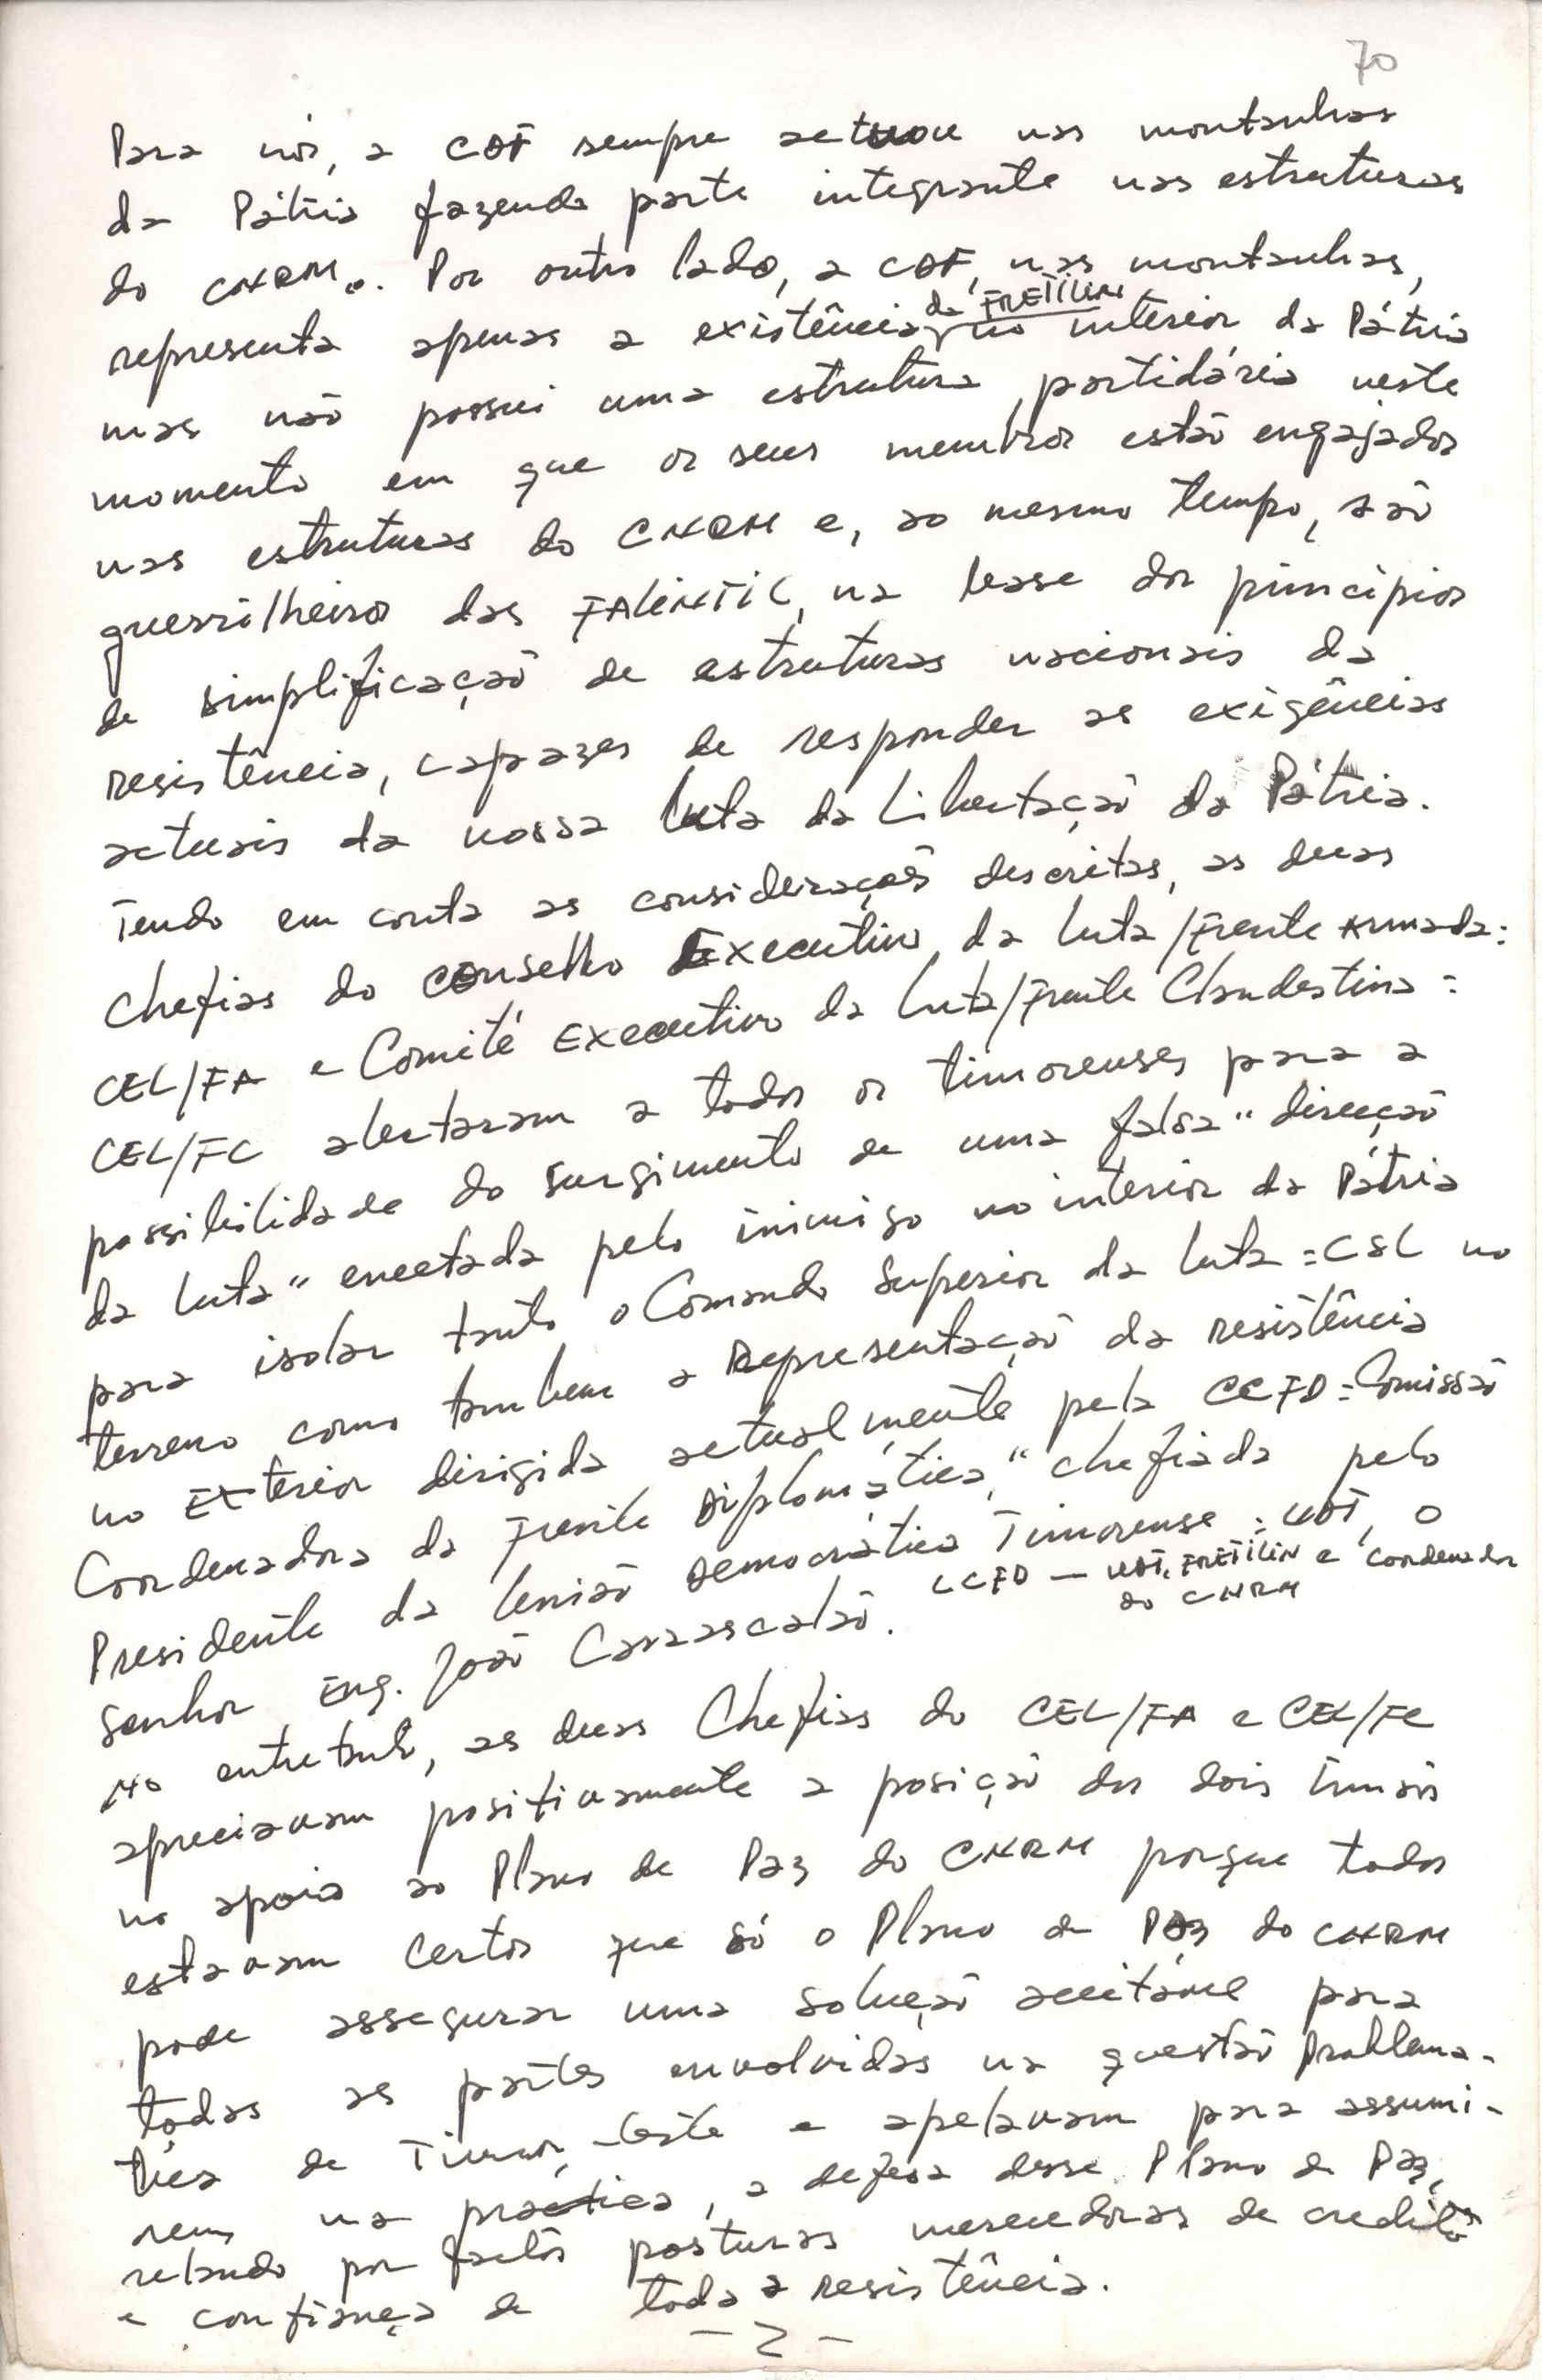 70
Para nós, a CDF sempre actuou nas montanhas
da Pátria fazendo parte integrante nas estruturas
do CNRM. Por outro lado, a CDF, nas montanhas,
representa apenas a existência da FRETILIN no interior da Pátria
mas não possui uma estrutura partidária neste
momento em que os seus membros estão engajados
nas estruturas do CNRM e, ao mesmo tempo, são
guerrilheiros das FALINTIL, na base dos princípios
de simplificação de estruturas nacionais da
resistência, capazes de responder as exigências
actuais da nossa luta da Libertação da Pátria.
Tendo em conta as considerações descritas, as duas
chefias do conselho Executivo da luta/Frente Armada:
CEL/FA e Comité Executivo da luta/Frente Clandestina:
CEL/FC alertaram a todos os timorenses para a
possibilidade do surgimento de uma falsa "direcção
da luta" encetada pelo inimigo no interior da Pátria
para isolar tanto o Comando Superior da luta = CSL no
terreno como também a Representação da resistência
no Exterior dirigida actualmente pela CCFD = Comissão
Coordenadora da Frente Diplomática," chefiada pelo
Presidente da União Democrática Timorense = UDT, o
Senhor Eng. João Carrascalão. CCFD — UDT, FRETILIN e Coordenador
do CNRM
No entretanto, as duas Chefias do CEL/FA e CEL/FC
apreciavam positivamente a posição dos dois irmãos
no apoio ao Plano de Paz do CNRM porque todos
estavam certos que só o Plano de Paz do CNRM
pode assegurar uma solução aceitável para
todas as partes envolvidas na questão problema-
tica de Timor-Leste e apelavam para assumi-
rem na practica, a defesa desse Plano de Paz,
relando por factos posturas merecedoras de credito
e confiança de toda a resistência.
- 2 -